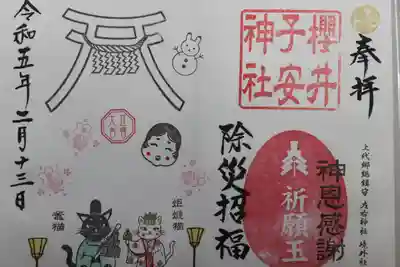 奉拝
上代郷総鎮守 左右神社 境外社
櫻井
子安
神社
神恩感謝
祈願玉
除災招福
令和五年二月十三日